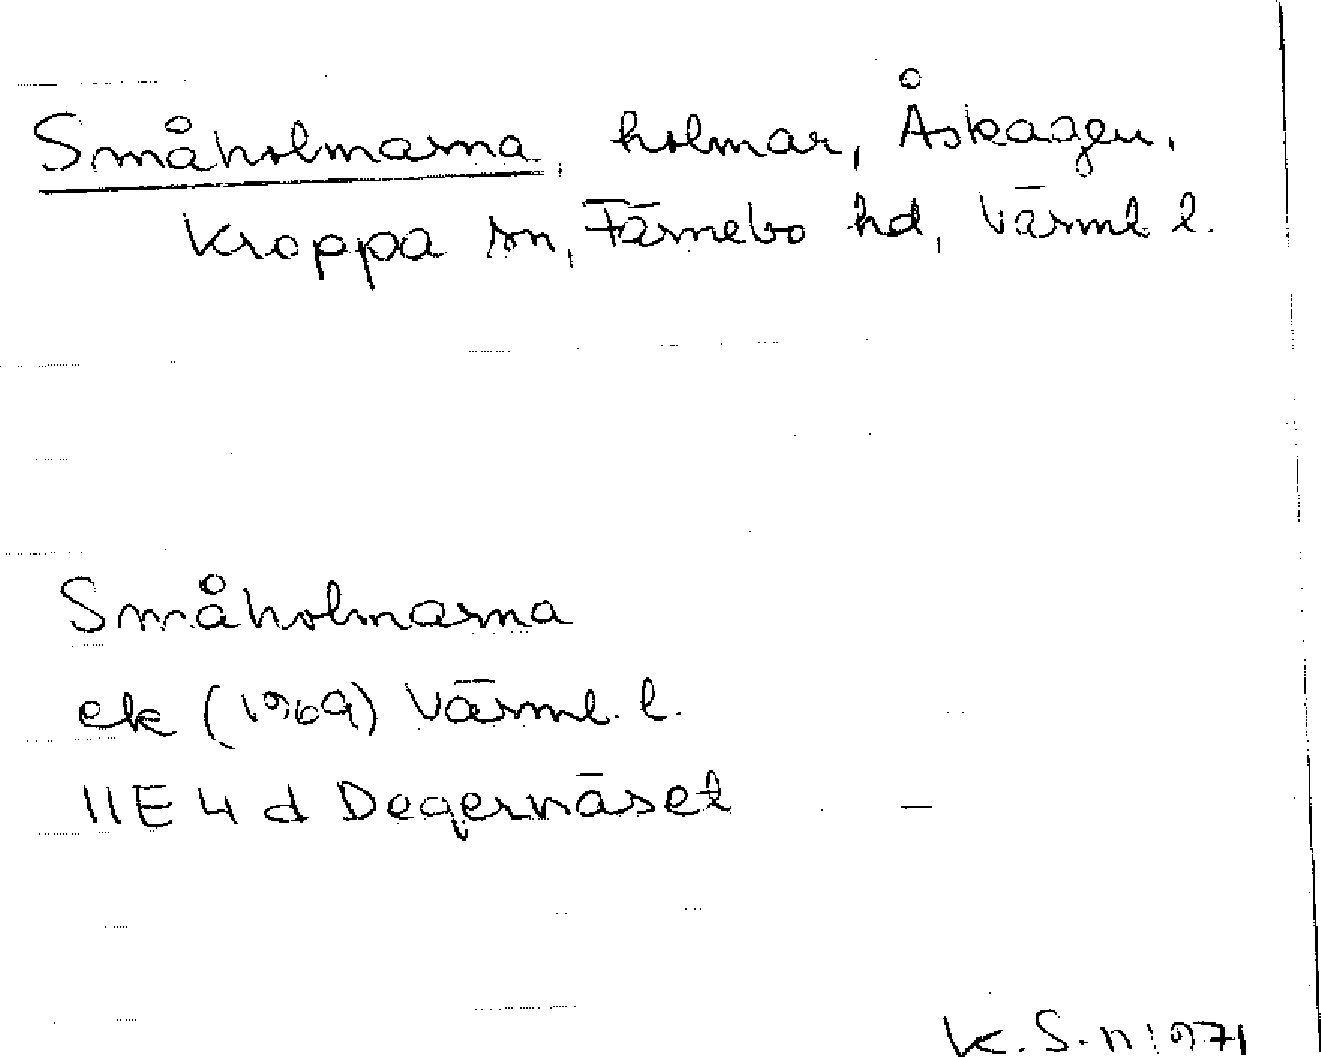 Småholmarna, holmar, Åskagen,
Kroppa sn, Färnebo hd, Värml l.
Småholmarna
ek (1969) Värml. l.
11E 4 d Degernäset –
K. S-n 1971